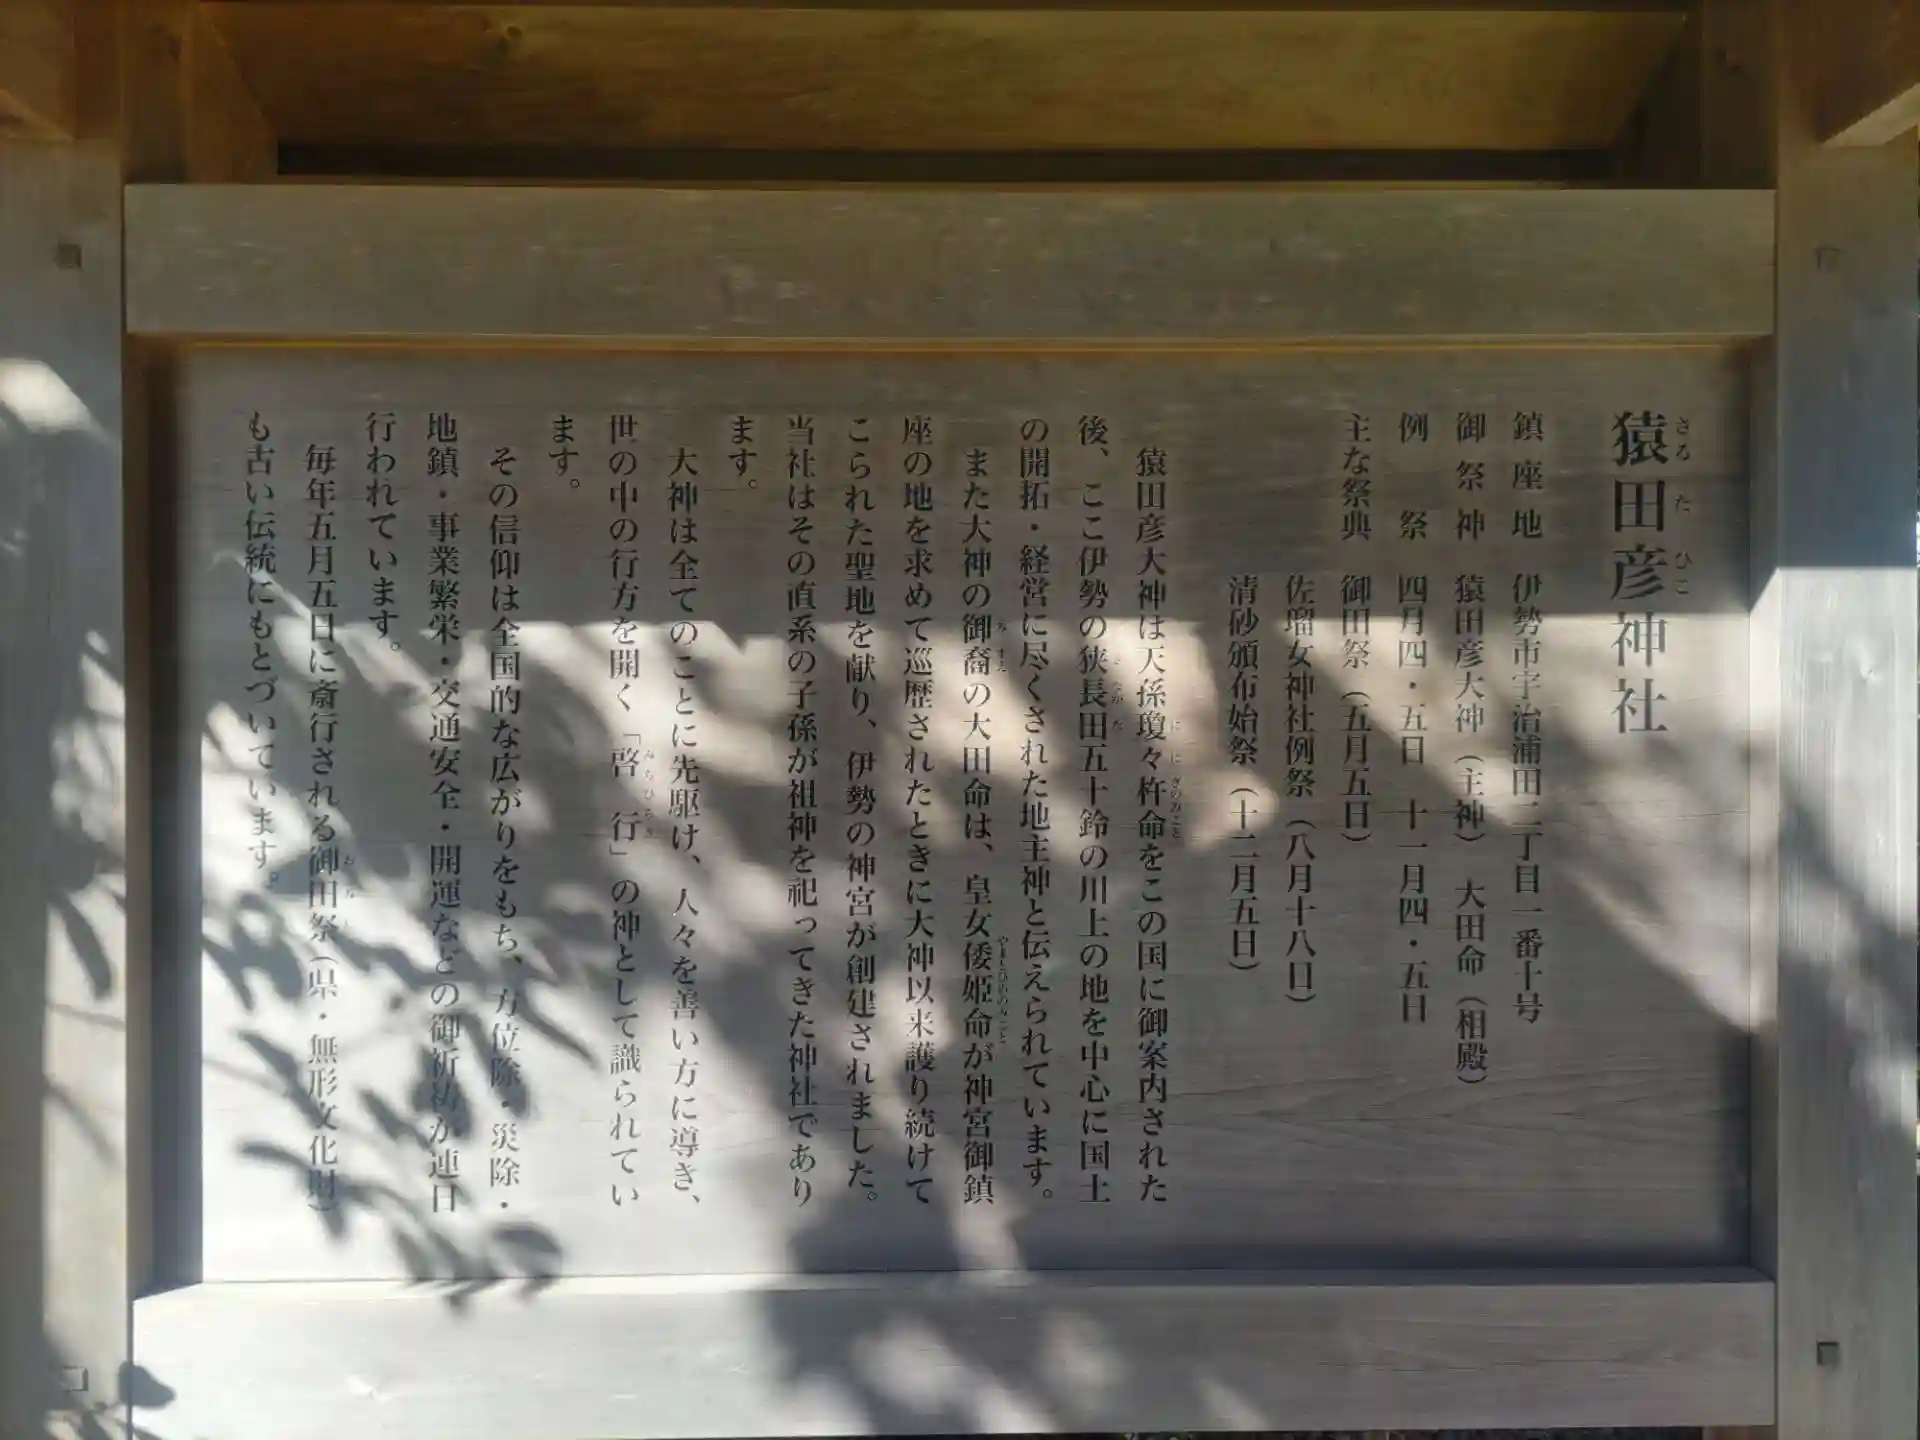 猿田彦神社
鎮座地 伊勢市宇治浦田二丁目一番十号
御祭神 猿田彦大神（主神） 大田命（相殿）
例祭 四月四・五日 十一月四・五日
主な祭典 御田祭（五月五日）
佐瑠女神社例祭（八月十八日）
清砂頒布始祭（十二月五日）
猿田彦大神は天孫瓊々杵命をこの国に御案内された
後、ここ伊勢の狭長田五十鈴の川上の地を中心に国土
の開拓・経営に尽くされた地主神と伝えられています。
また大神の御裔の大田命は、皇女倭姫命が神宮御鎮
座の地を求めて巡歴されたときに大神以来護り続けて
こられた聖地を献り、伊勢の神宮が創建されました。
当社はその直系の子孫が祖神を祀ってきた神社であり
ます。
大神は全てのことに先駆け、人々を善い方に導き、
世の中の行方を開く「啓行」の神として識られてい
ます。
その信仰は全国的な広がりをもち、方位除・災除・
地鎮・事業繁栄・交通安全・開運などの御祈祷が連日
行われています。
毎年五月五日に斎行される御田祭（県・無形文化財）
も古い伝統にもとづいています。